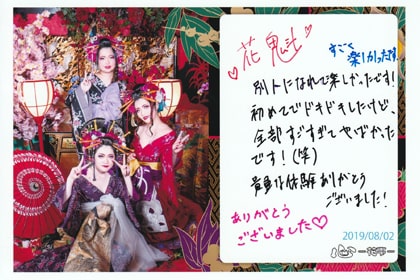 花魁
すごく
楽しかったです
別人になれて楽しかったです!
初めてでドキドキしたけど
全部すごすぎてやばかった
です!(笑)
体験ありがとう
ございました!
ありがとう
ございました♡
2019/08/02